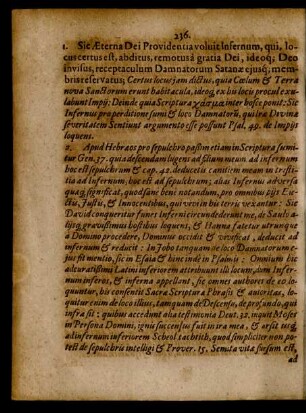 236.
1. Sic Æterna Dei Providentia voluit Infernum, qui, lo-
cus certus est, abditus, remotus à gratia Dei, ideoq; Deo
invisus, receptaculum Damnatorum Satanæ ejusq; mem-
bris reservatus; Certus locus jam dictus, quia Cœlum & Terra
nova Sanctorum erunt habitacula, ideoq; ex his locis procul exu-
labunt Impij: Deinde quia Scriptura χάσμα inter hosce ponit: Sic
Infernus pro perditione sumi & loco Damnatorũ, qui iræ Divinæ
severitatem Sentiunt argumento esse possunt Psal. 49. de Impijs
loquens.
2. Apud Hebræos pro sepulchro passim etiam in Scriptura sumi-
tur Gen. 37. quia descendam lugens ad filium meum ad infernum
hoc est sepulchrum & cap. 42. deducetis canitiem meam in tristi-
tia ad Infernum, hoc est ad sepulchrum; alias Infernus adversa
quæq; significat, quod sane benè notandum, pro omnibus pijs Lu-
ctu, Justis, & Innocentibus, qui verè in his terris vexantur: Sic
David conqueritur funes Inferni circundederunt me, de Saul
lijq; gravissimus hostibus loquens, & Hanna fatetur utrumque
à Domino procedere, Dominus occidit & vivificat, deducit ad
infernum & reducit: In Job tanquam de loco Damnatorum e-
jus fit mentio, sic in Esaia & hinc inde in Psalmis: Omnium hic
accuratissimi Latini inferiorem attribuunt illi locum, dum Infer-
num inferos, & inferna appellant, sic omnes authores de eo lo-
quuntur, his consentit Sacra Scriptura Phrasis & autoritas, lo-
quitur enim de loco illius, tanquam de Descensu, de profundo, qui
infra sit: quibus accedunt alia testimonia Deut. 32. inquit Moses
in Persona Domini, ignis succensus fuit in ira mea, & arsit usq;
ad infernum inferiorem Scheol tachtith, quod simpliciter non po-
test de sepulchris intelligi & Prover. 15. Semita vitæ sursum est,
ad